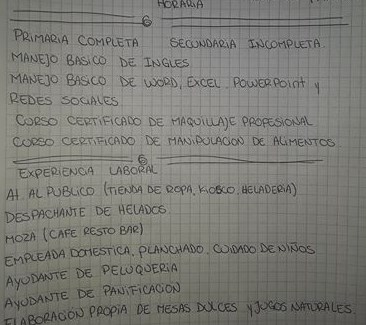 HORARIA
6
PRIMARIA COMPLETA SECUNDARIA INCOMPLETA.
MANEJO BASICO DE INGLES
MANEJO BASICO DE WORD, EXCEL. POWERPOINT y
REDES SOCIALES
CURSO CERTIFICADO DE MAQUILLAJE PROFESIONAL
CURSO CERTIFICADO DE MANIPULACION DE ALIMENTOS
6
EXPERIENCIA LABORAL
At. AL PUBLICO (TIENDA DE ROPA, KIOSCO, HELADERIA)
DESPACHANTE DE HELADOS
MOZA (CAFE RESTO BAR)
EMPLEADA DOMESTICA, PLANCHADO, CUIDADO DE NIÑOS
AYUDANTE DE PELUQUERIA
AYUDANTE DE PANIFICACION
ELABORACION PROPIA DE MESAS DULCES y JUGOS NATURALES.